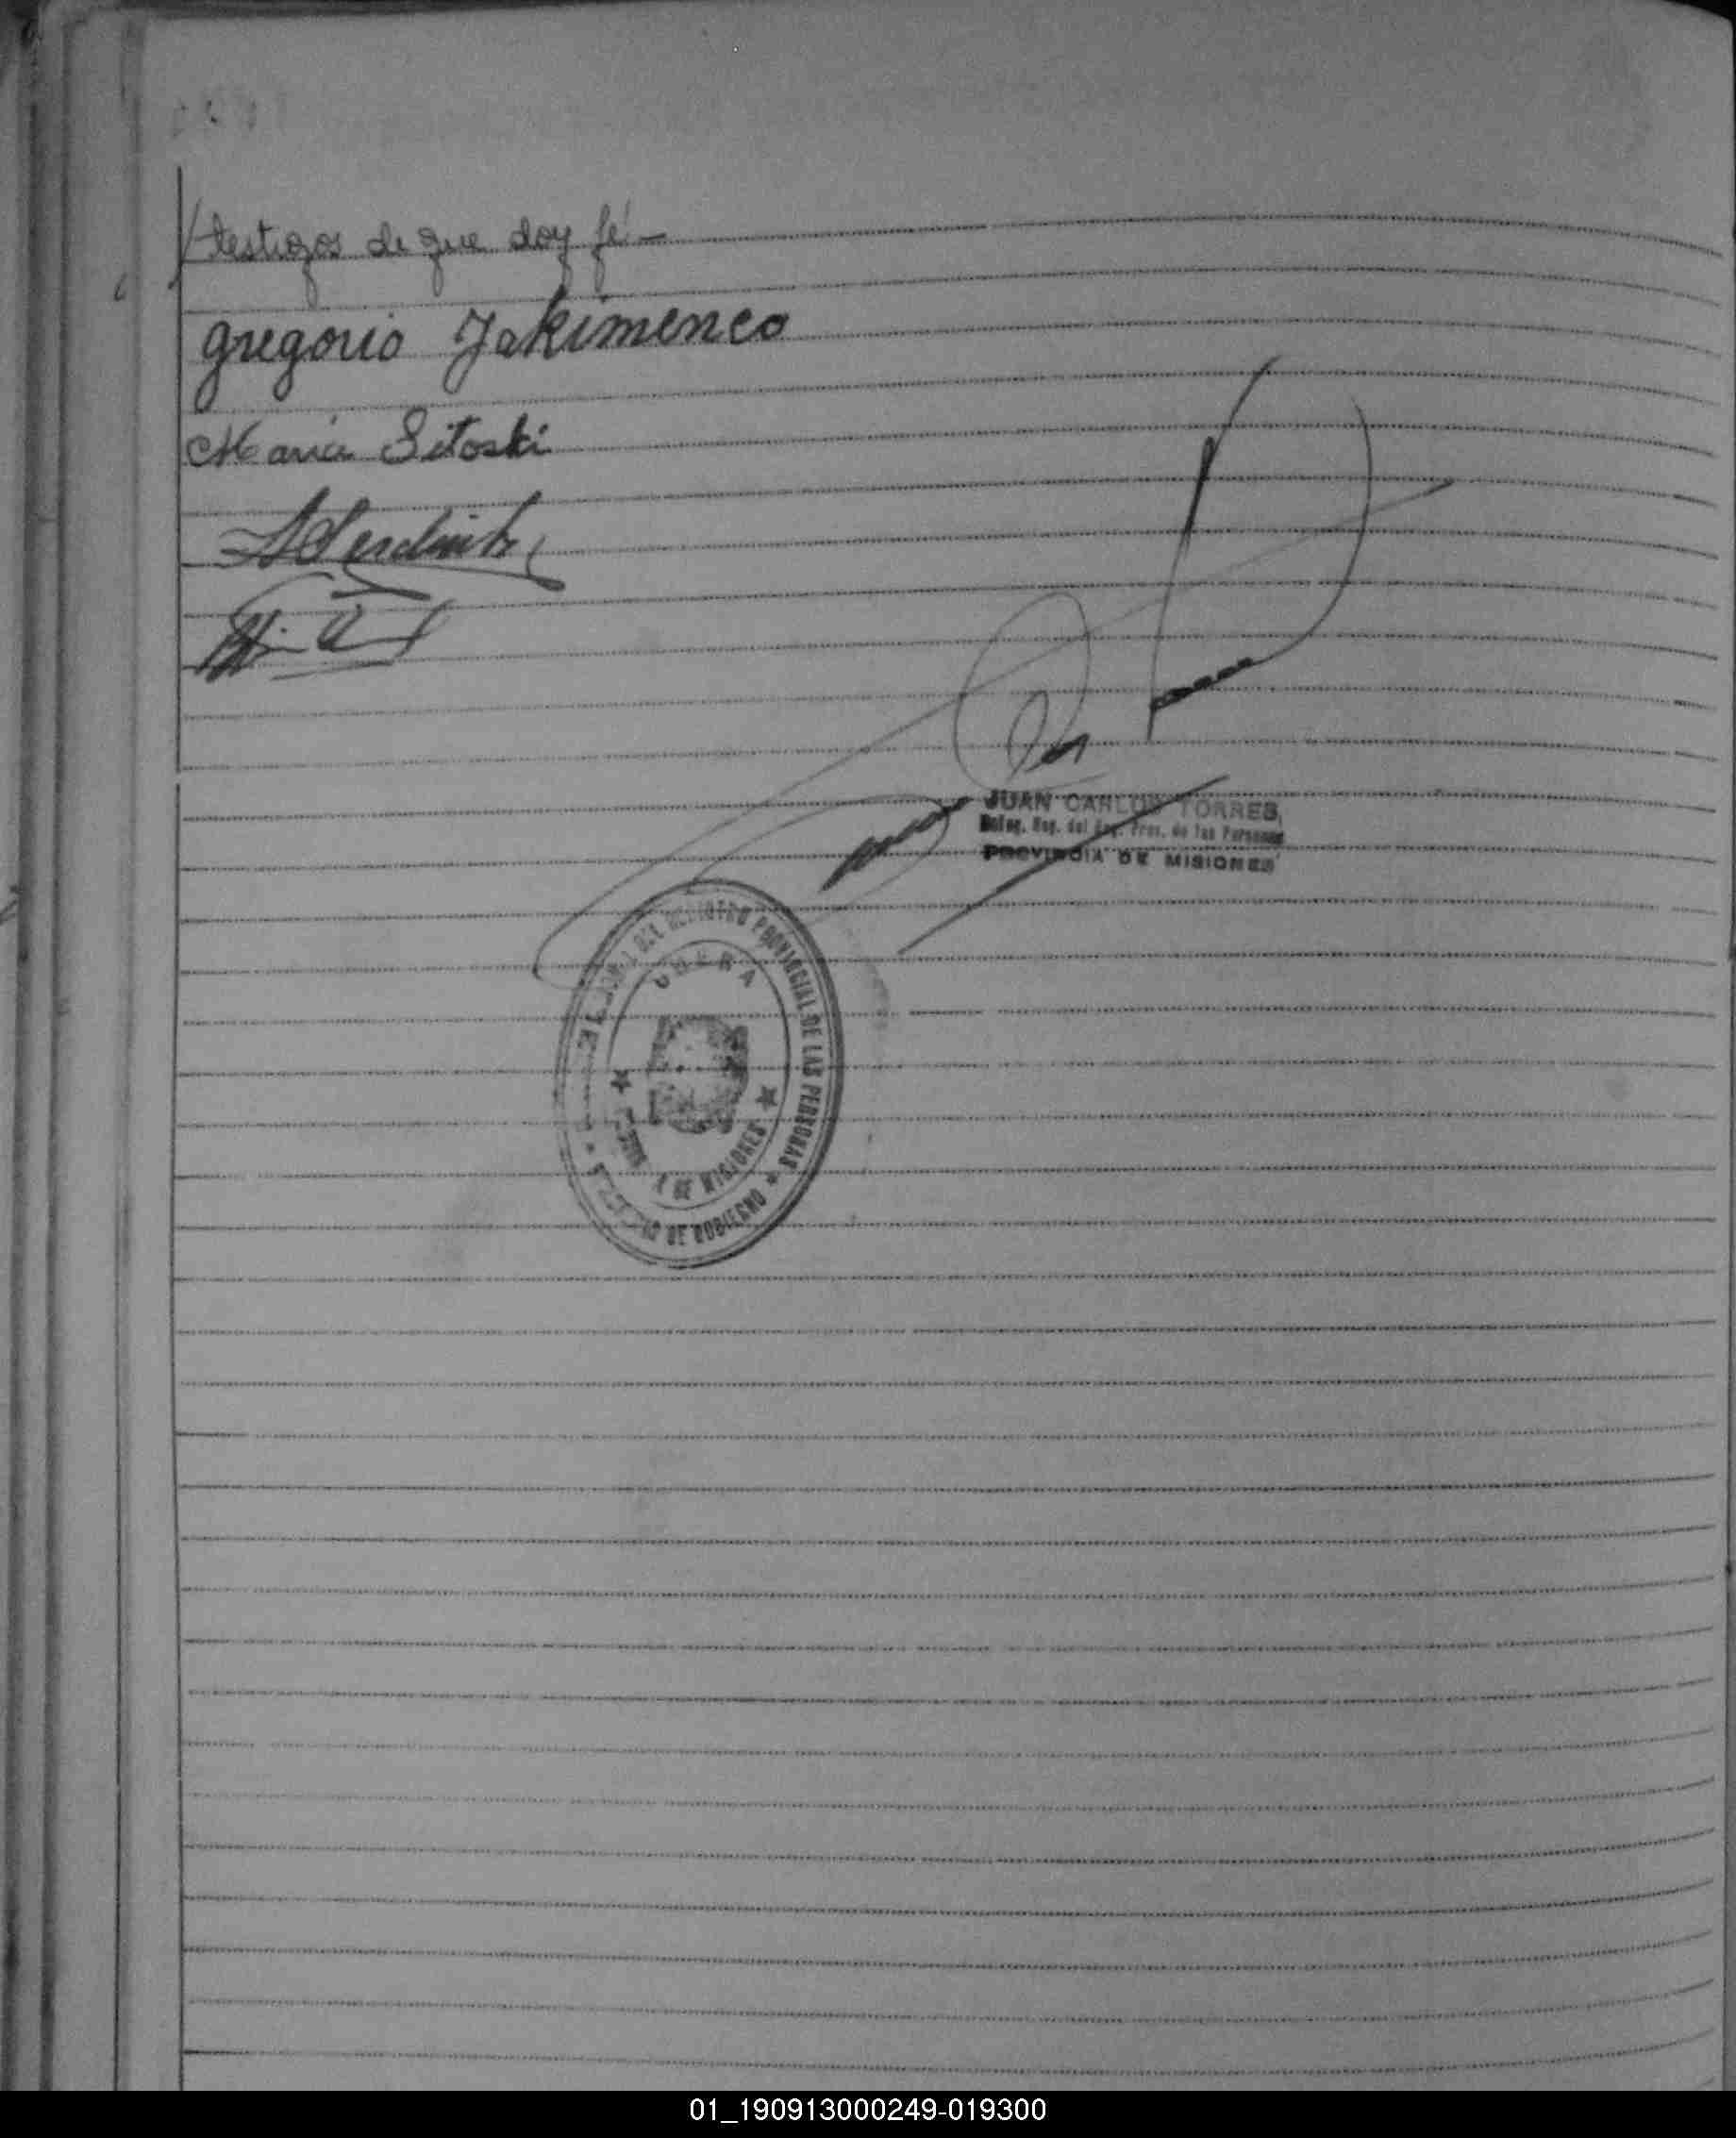 testigos de que doy fé -
Gregorio Jakimenco
Maria Sitoski
JUAN CARLOS TORRES
Deleg. Reg. del Reg. Prov. de las Personas
PROVINCIA DE MISIONES
DEL REGISTRO PROVINCIAL DE LAS PERSONAS
OBERA
DE MISIONES
DE GOBIERNO
01_190913000249-019300